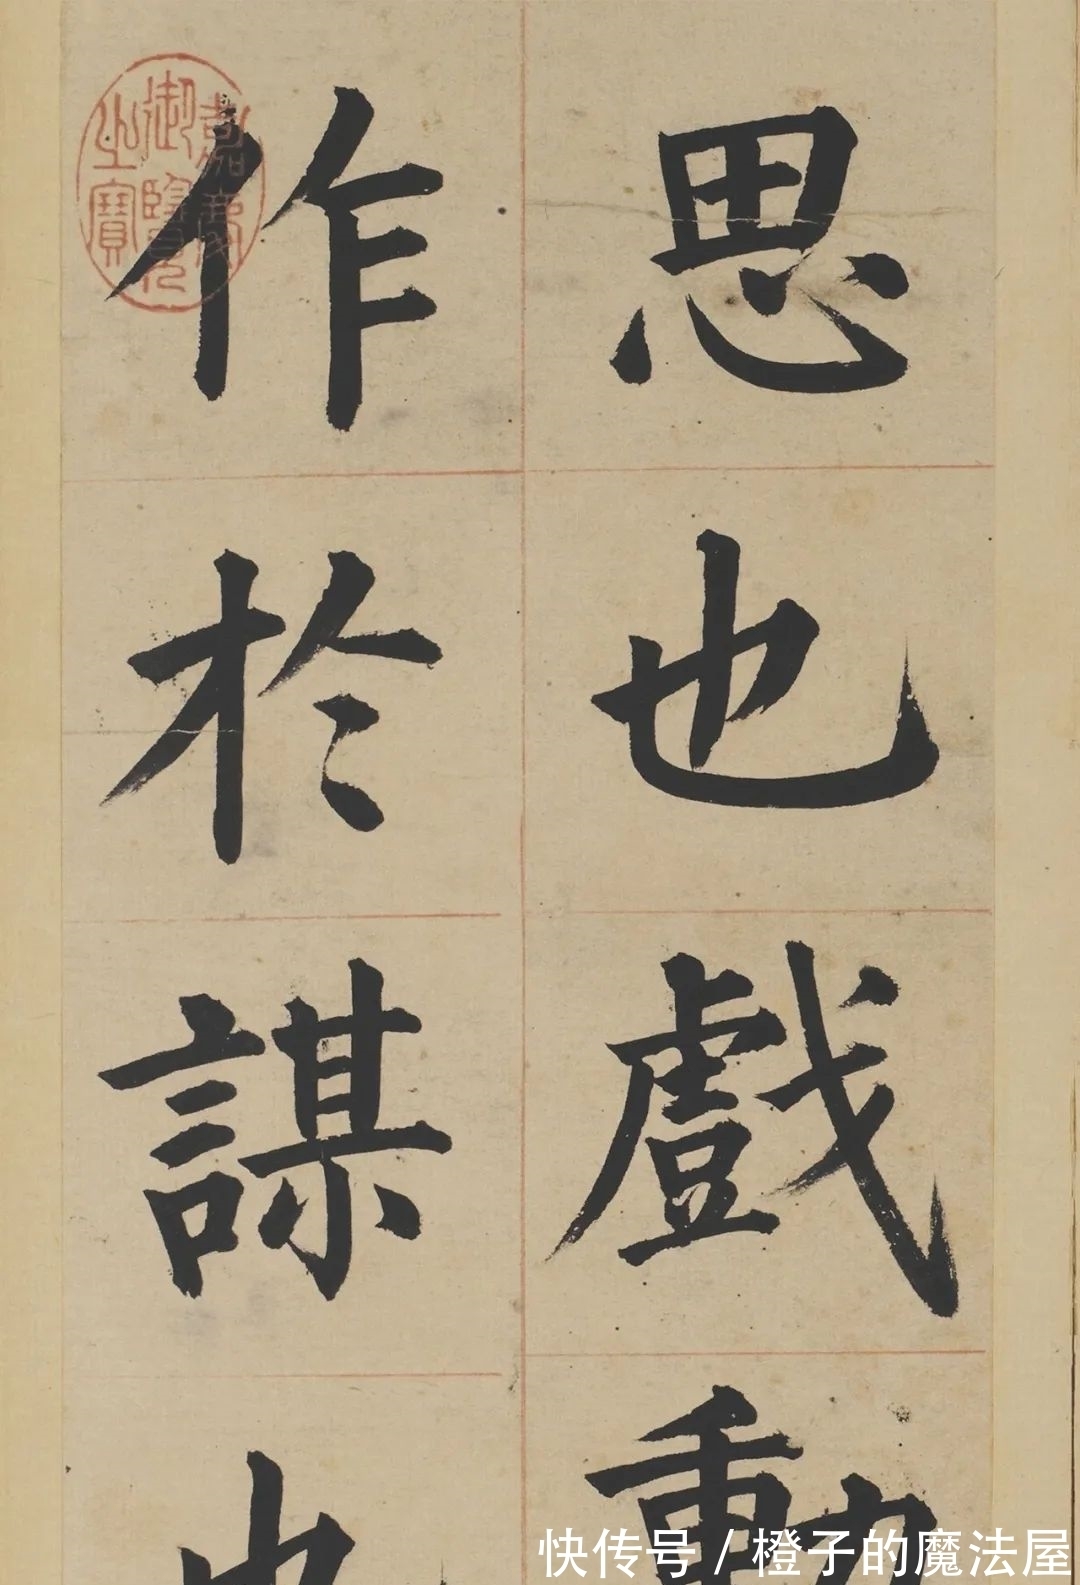 思也戲動
作於謀也
嘉慶御覽之寶
快传号 / 橙子的魔法屋